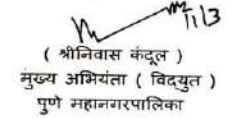 11/3
( श्रीनिवास कंदूल )
मुख्य अभियंता ( विद्युत )
पुणे महानगरपालिका